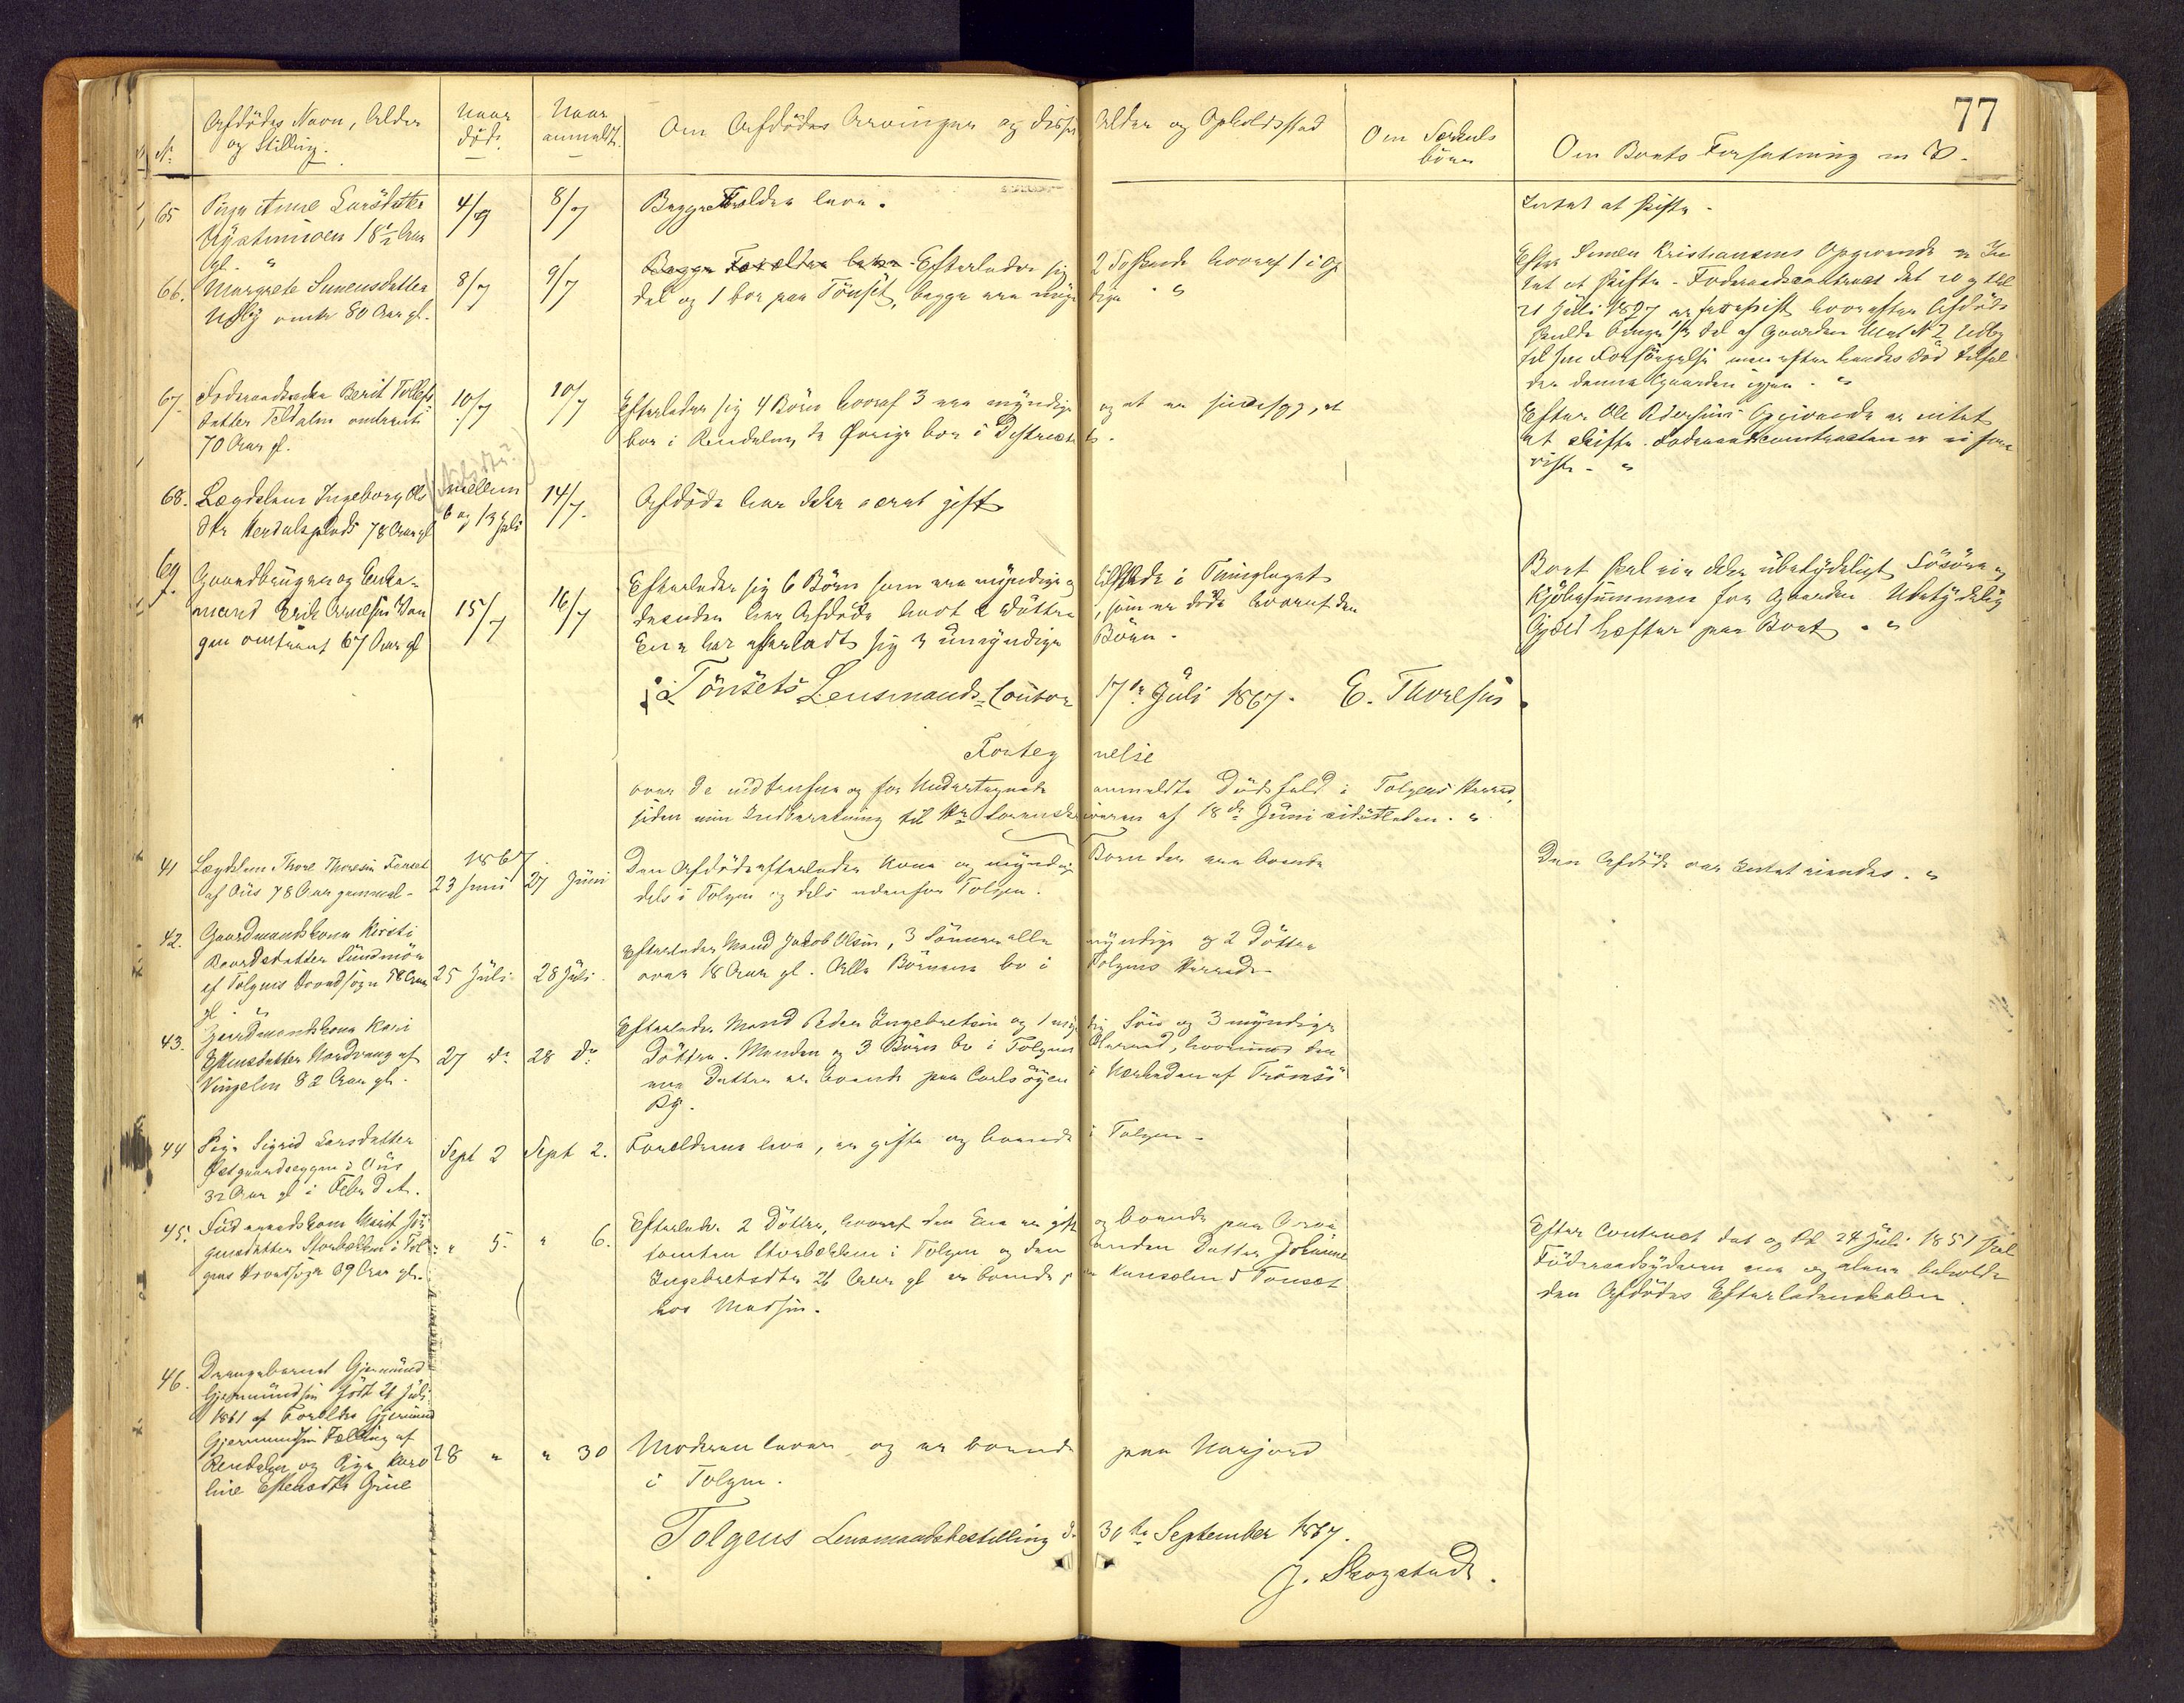 77
No
Afdödes Navn, Alder
og Stilling.
Naar
död.
Naar
anmeldt.
Om Afdödes Arvinger og disses Alder og Opholdsstad
Om Særkuls
börn
Om Boets Forfatning m. V.
65
Pige Anne Larsdatter
18½ Aar
gl. "
4/7
8/7
Begge Forældre leve.
Intet at skifte.
66.
Margrete Simensdatter
Udby omtr 80 Aar gl.
8/7
9/7
Begge Forældre leve Efterlader sig 2 Södskende hvoraf 1 i
dal og 1 bor paa Tönset, begge ere myndige "
Efter Simen Kristiansens Opgivende er In
tet at skifte. Foderaadscontract dat 20 og tlst
21 Juli 1827 er forevist hvorefter Afdöde
skulde bruge del af Gaarden Udby
til sin Forsörgelse men efter hendes Död tilfal
der denne Gaarden igjen. "
67.
Foderaadsenke Berit Tollefs
datter Teldalen omtrent
70 Aar gl.
10/7
10/7
Efterlader sig 4 Börn hvoraf 3 ere myndige og et er
bor i Rendalen, de Övrige bor i Distriktet.
Efter Ole Opgivende er intet
at skifte. Foderaadscontracten er ei fore
vist. "
68.
Lægdslem Ingeborg Ols
dtr 78 Aar gl
mellem
6 og 13 Juli
14/7.
Afdöde har ikke været gift
69.
Gaardbruger og Enke-
mand Erik Arnesen Van
gen omtrent 67 Aar gl
15/7
16/7
Efterlader sig 6 Börn som ere myndige og tilstede i Thinglaget
desuden har Afdöde havt 2 Döttre, som er döde hvoraf den
Ene har efterladt sig 3 umyndige Börn.
Boet skal eie ikke ubetydeligt Lösöre og
Kjöbesummen for Gaarden. Ubetydelig
Gjæld hæfter paa Boet. "
Tönsets Lensmands-Contor 17de Juli 1867. E. Thoresen
Fortegnelse
over de indtrufne og for Undertegnede anmeldte Dödsfald i Tolgens Herred,
siden min Indberetning til Hr Sorenskriveren af 18de Juni sidstleden. "
1867
41
Lægdslem Thore Thoresen
af Öus 78 Aar gammel
23 Juni
27 Juni
Den Afdöde efterlader Kone og myndige Born der ere boende
dels i Tolgen og dels udenfor Tolgen.
Den Afdöde var Intet eiendes. "
42.
Gaardmandskone Kirsti
Baardsdatter Sundmön
af Tolgens Hovedsogn 58 Aar
gl. "
25 Juli
28 Juli.
Efterlader Mand Jakob Olsen, 3 Sönner alle myndige og 2 Döttre
over 18 Aar gl. Alle Börnene bo i Tolgens Herred.
43.
Gaardmandskone Kari
Estensdatter Nordvang af
Vingelen 82 Aar gl.
27 do
28 do
Efterlader Mand Peder Ingebretsen og 1 myndig Sön og 3 myndige
Döttre. Manden og 3 Börn bo i Tolgens Herred, hvorimod den
ene Datter er boende paa Carlsöyen i Nærheden af Tromsö
By.
44
Pige Sigrid Larsdatter
Östgaardseggen i Öus
32 Aar gl i Febr d. A.
Sept 2
Sept 2.
Forældrene leve, er gifte og boende i Tolgen.
45.
Födraadskone Marit Jör
gensdatter Storbækken i Tol
gens Hovedsogn 69 Aar gl.
" 5.
" 6.
Efterlader 2 Döttre, hvoraf den Ene er gift og boende paa
tomten Storbækken i Tolgen og den anden Datter Johanne
Ingebretsdtr 26 Aar gl er boende i Tonset
hos Madsen.
Efter Contract dat og tl 24 Juli 1851 skal
Födraadsyderen ene og alene beholde
den Afdödes Efterladenskaber.
46.
Drengebarnet Gjermund
Gjermundsen födt 21 Juli
1861 af Forældre Gjermund
Gjermundsen Fælling af
Rendalen og Pige Karo
line Estensdtr Grue
28 "
" 30
Moderen lever og er boende paa Narjord
i Tolgen.
Tolgens Lensmandsbestilling d. 30te September 1867.
J. Skogstad.